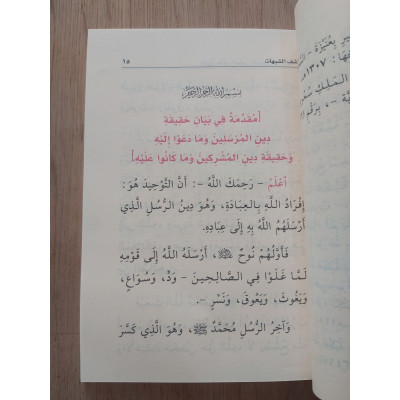 كشف الشبهات
١٥
بسم الله الرحمن الرحيم
[مُقَدِّمَةٌ فِي بَيَانِ حَقِيقَةِ
دِينِ المُرْسَلِينَ وَمَا دَعَوْا إِلَيْهِ
وَحَقِيقَةِ دِينِ المُشْرِكِينَ وَمَا كَانُوا عَلَيْهِ]
اعْلَمْ - رَحِمَكَ اللَّهُ -: أَنَّ التَّوْحِيدَ هُوَ:
إِفْرَادُ اللَّهِ بِالعِبَادَةِ، وَهُوَ دِينُ الرُّسُلِ الَّذِي
أَرْسَلَهُمُ اللَّهُ بِهِ إِلَى عِبَادِهِ.
فَأَوَّلُهُمْ نُوحٌ ﷺ، أَرْسَلَهُ اللَّهُ إِلَى قَوْمِهِ
لَمَّا غَلَوْا فِي الصَّالِحِينَ - وَدٍّ، وَسُوَاعٍ،
وَيَغُوثَ، وَيَعُوقَ، وَنَسْرٍ -.
وَآخِرُ الرُّسُلِ مُحَمَّدٌ ﷺ، وَهُوَ الَّذِي كَسَّرَ
بِعُنَيْزَةَ
١٣٠٧
المَلِكِ
بِرَقْمِ